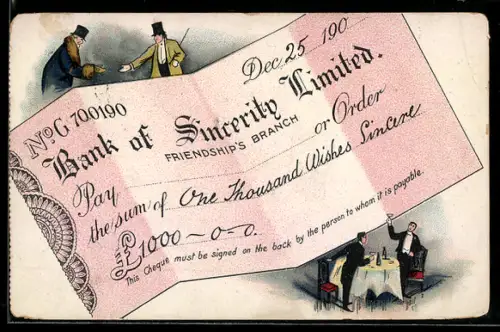 Dec 25 190
No. G 700190
Bank of Sincerity Limited.
FRIENDSHIP'S BRANCH
Pay or Order
the sum of One Thousand Wishes Sincere
£1000-0-0.
This Cheque must be signed on the back by the person to whom it is payable.